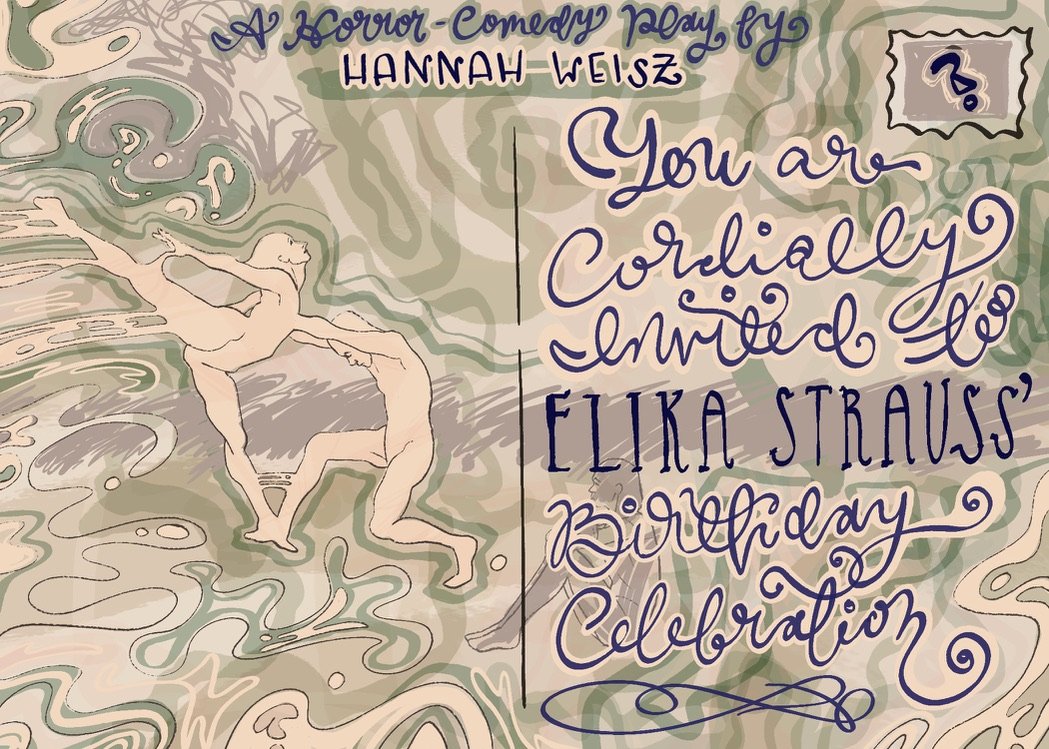 A Horror-Comedy Play by
HANNAH WEISZ
?
You are
Cordially
Invited to
ELIKA STRAUSS'
Birthday
Celebration